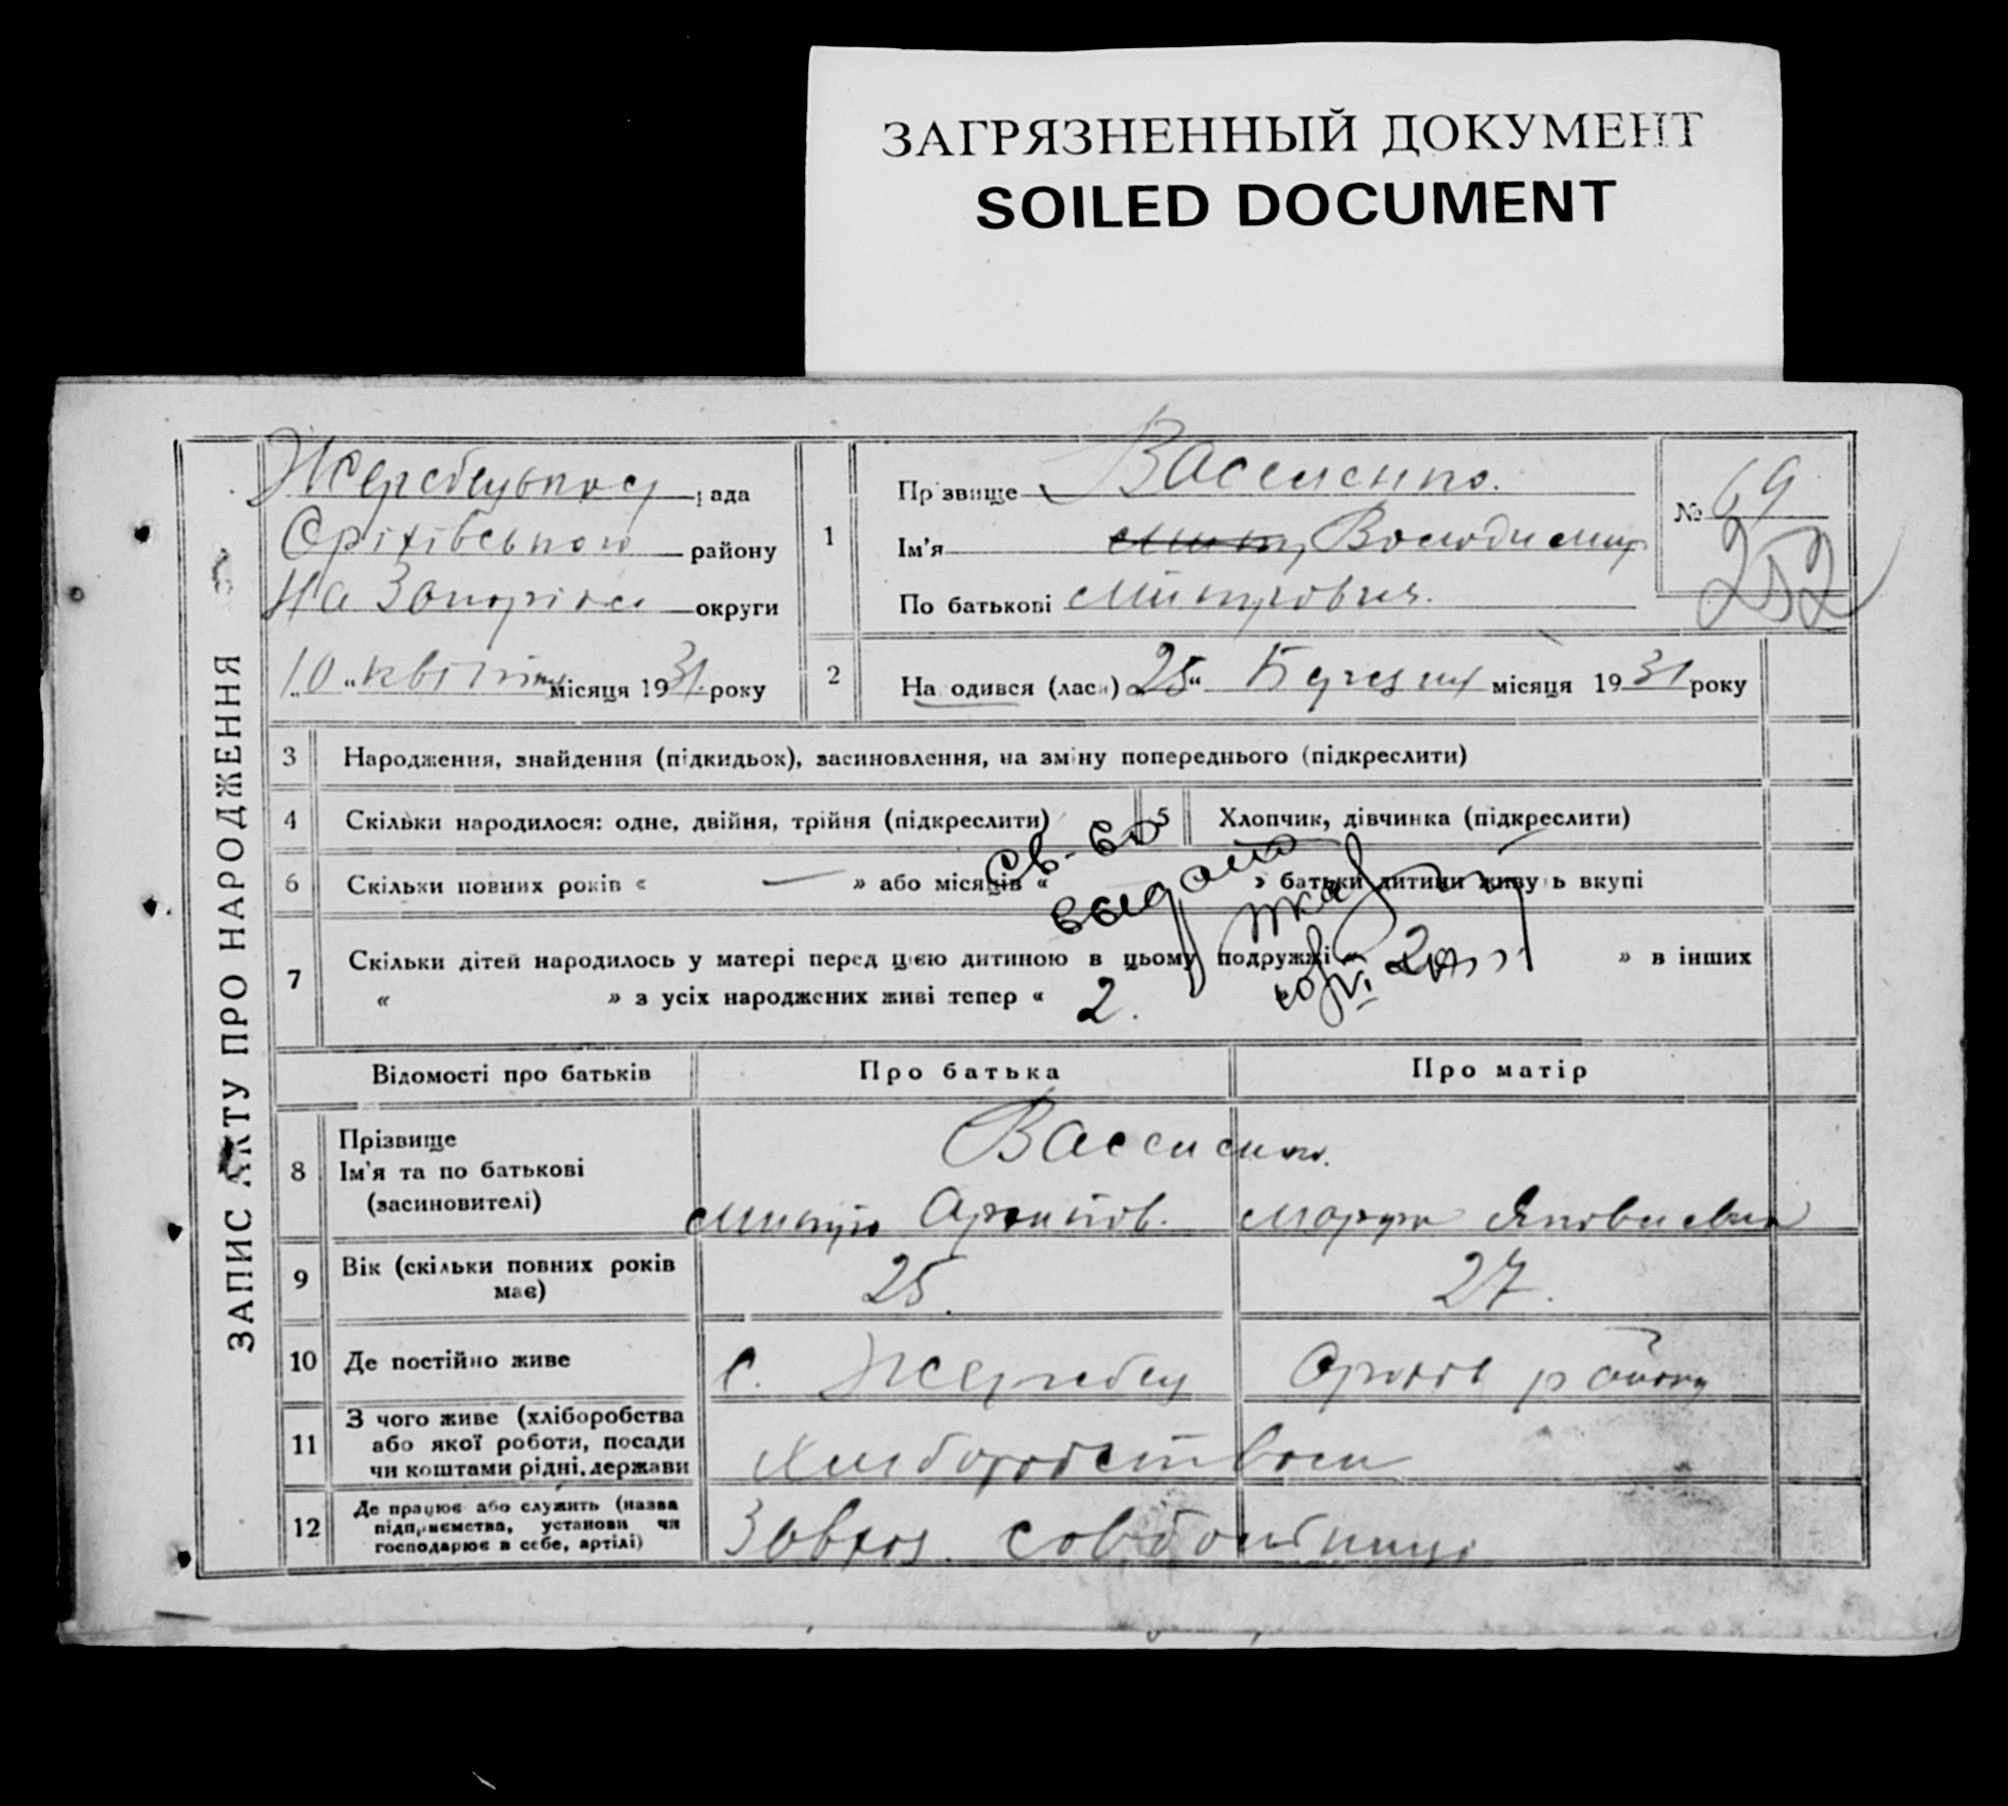 ЗАГРЯЗНЕННЫЙ ДОКУМЕНТ
SOILED DOCUMENT
ЗАПИС АКТУ ПРО НАРОДЖЕННЯ
рада
Оріхівського району
На Запоріжжі округи
„10“ квітня місяця 1931 року
1
Прізвище Василенко.
Ім'я Володимир
По батькові Митрович.
№ 69
252
2
Народився (лася) 25“ Березня місяця 1931 року
3 Народження, знайдення (підкидьок), засиновлення, на зміну попереднього (підкреслити)
4 Скільки народилося: одне, двійня, трійня (підкреслити)
5 Хлопчик, дівчинка (підкреслити)
6 Скільки повних років « — » або місяців « » батьки дитини живуть вкупі
Св-во
7 Скільки дітей народилось у матері перед цією дитиною в цьому подружжі « » в інших
« » з усіх народжених живі тепер « 2.
Відомості про батьків Про батька Про матір
8 Прізвище
Ім'я та по батькові
(засиновителі)
Василенко.
Митро Архипов. Марфа Яковлевна
9 Вік (скільки повних років
має)
25. 27.
10 Де постійно живе
с. Жеребец Оріхів району
11 З чого живе (хліборобства
або якої роботи, посади
чи коштами рідні, держави
Хліборобством
12 Де працює або служить (назва
підприємства, установи чи
господарює в себе, артілі)
Завхоз.